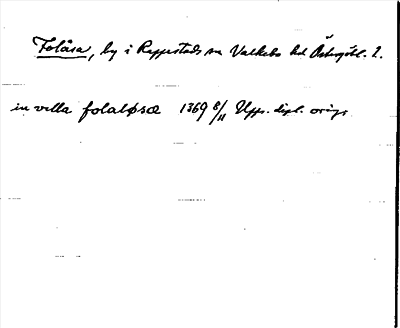 Folåsa, by i Rappestads sn Valkebo hd Östergötl. l.
in villa folaløsæ 1369 8/11 Upps. dipl. orig.